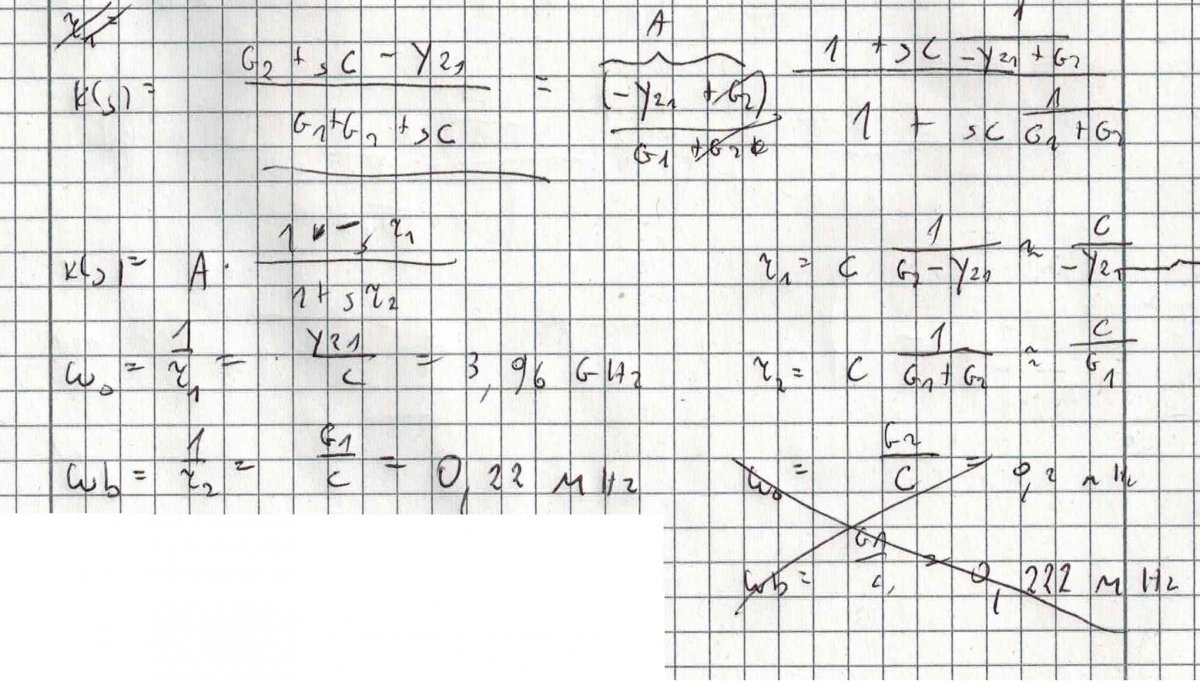 τ₁ =
K(s) = (G₂ + sC − Y₂₁) / (G₁ + G₂ + sC) = (−Y₂₁ + G₂) / (G₁ + G₂) · (1 + sC 1/(−Y₂₁ + G₂)) / (1 + sC 1/(G₁ + G₂))
A
K(s) = A · (1 − s τ₁) / (1 + s τ₂)
τ₁ = C 1/(G₂ − Y₂₁) ≈ C/(−Y₂₁)
ω₀ = 1/τ₁ = Y₂₁/C = 3,96 GHz
τ₂ = C 1/(G₁ + G₂) ≈ C/G₁
ωb = 1/τ₂ = G₁/C = 0,22 MHz
ω₀ = G₂/C = 0,2 MHz
ωb = G₁/C = 0,222 MHz